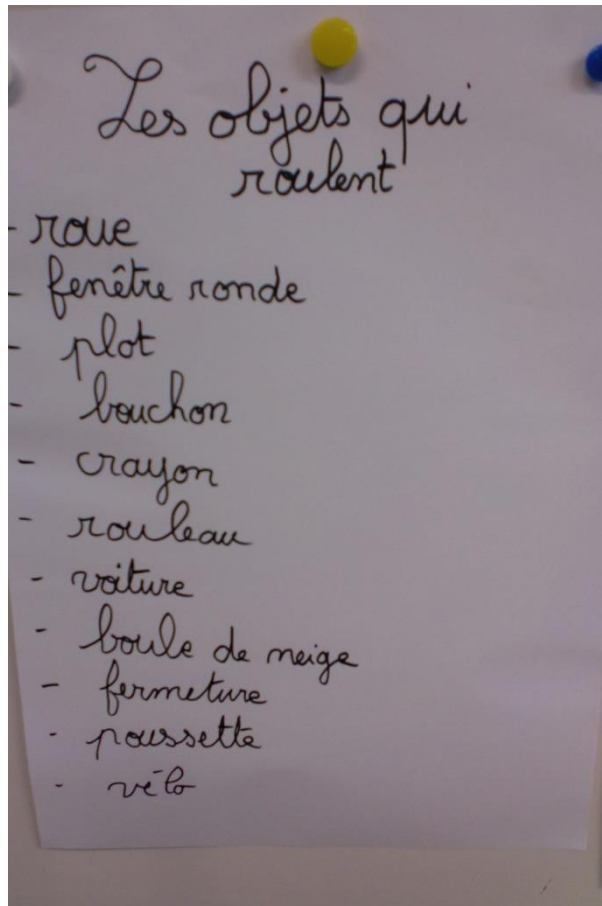 Les objets qui
roulent
- roue
- fenêtre ronde
- plot
- bouchon
- crayon
- rouleau
- voiture
- boule de neige
- fermeture
- poussette
- vélo